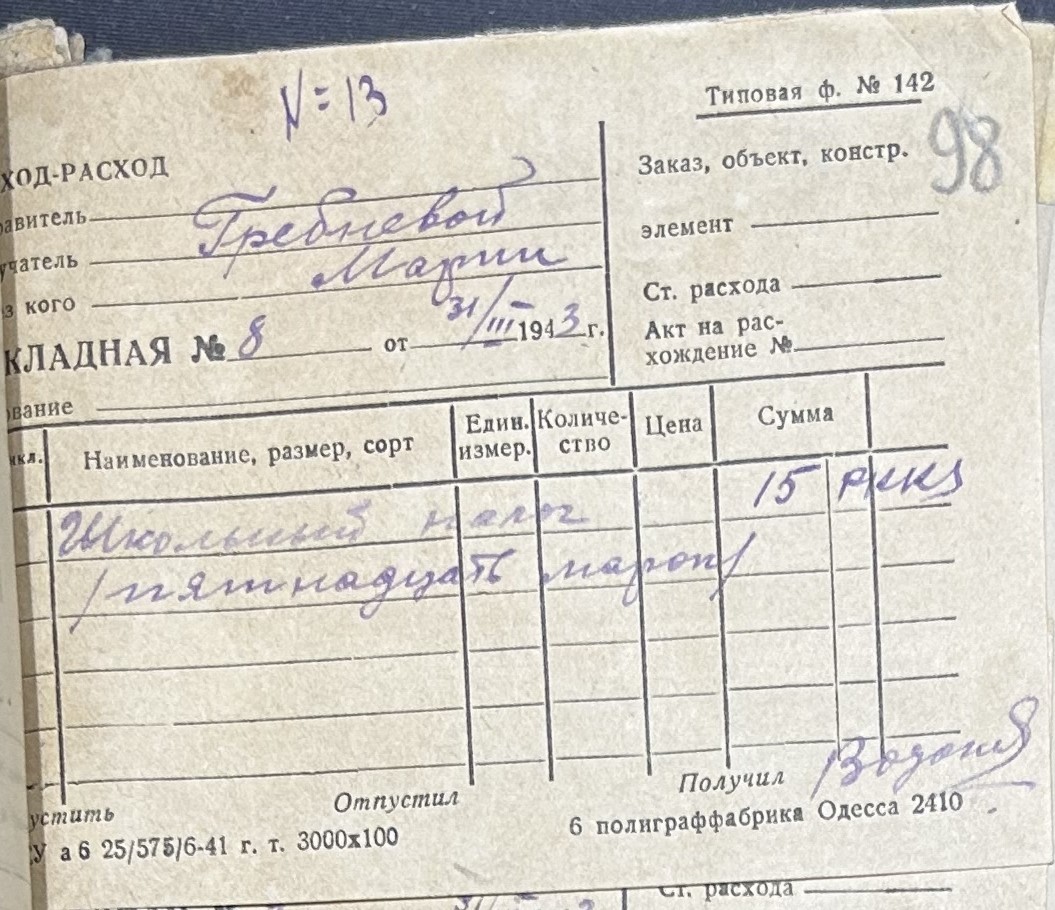 N=13
Типовая ф. № 142
98
ХОД-РАСХОД
Заказ, объект, констр.
равитель Гребневой
элемент
учатель Марии
Ст. расхода
з кого
КЛАДНАЯ № 8 от 31/III 1943 г.
Акт на рас-
хождение №
ование
кл. Наименование, размер, сорт Един. измер. Количе- ство Цена Сумма
Школьный налог 15 РККS
/пятнадцать марок/
устить Отпустил Получил
У а 6 25/575/6-41 г. т. 3000х100 6 полиграффабрика Одесса 2410
Ст. расхода